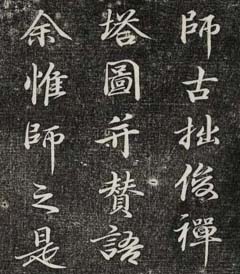 師古拙俊禪
塔圖并賛語
余惟師之是